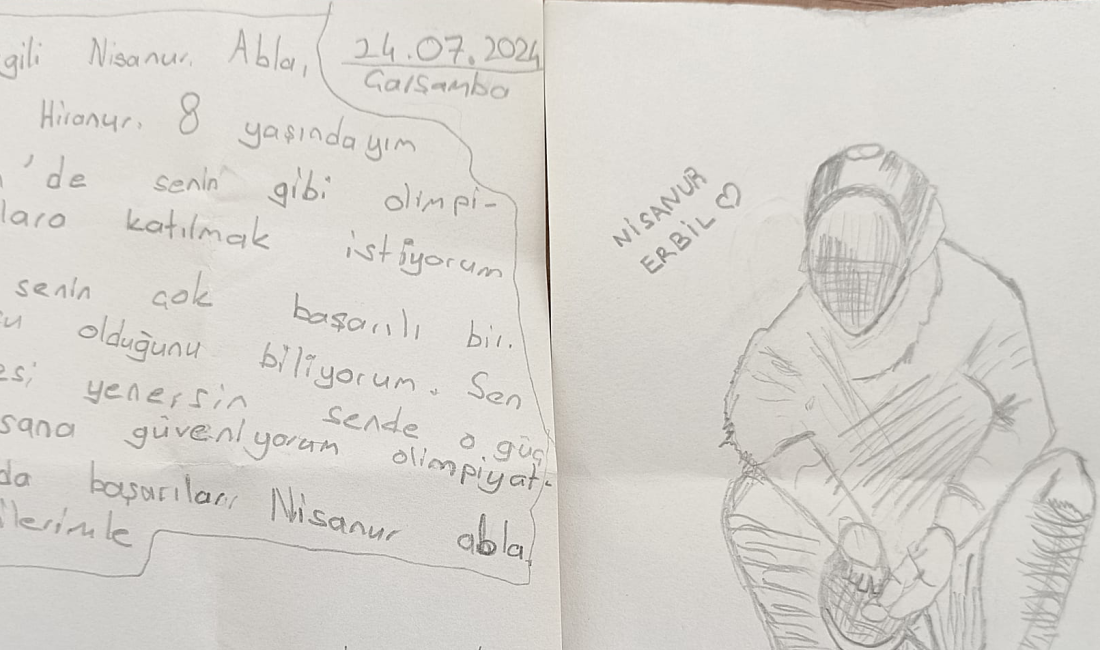 gili Nisanur Abla,
24.07.2024
Çarşamba
Hiranur. 8 yaşındayım
'de senin gibi olimpi-
lara katılmak istiyorum
senin çok başarılı bir.
olduğunu biliyorum. Sen
yenersin sende o güç
sana güveniyorum olimpiyat-
da başarılar, Nisanur abla
ilerimle
NİSANUR
ERBİL ♡